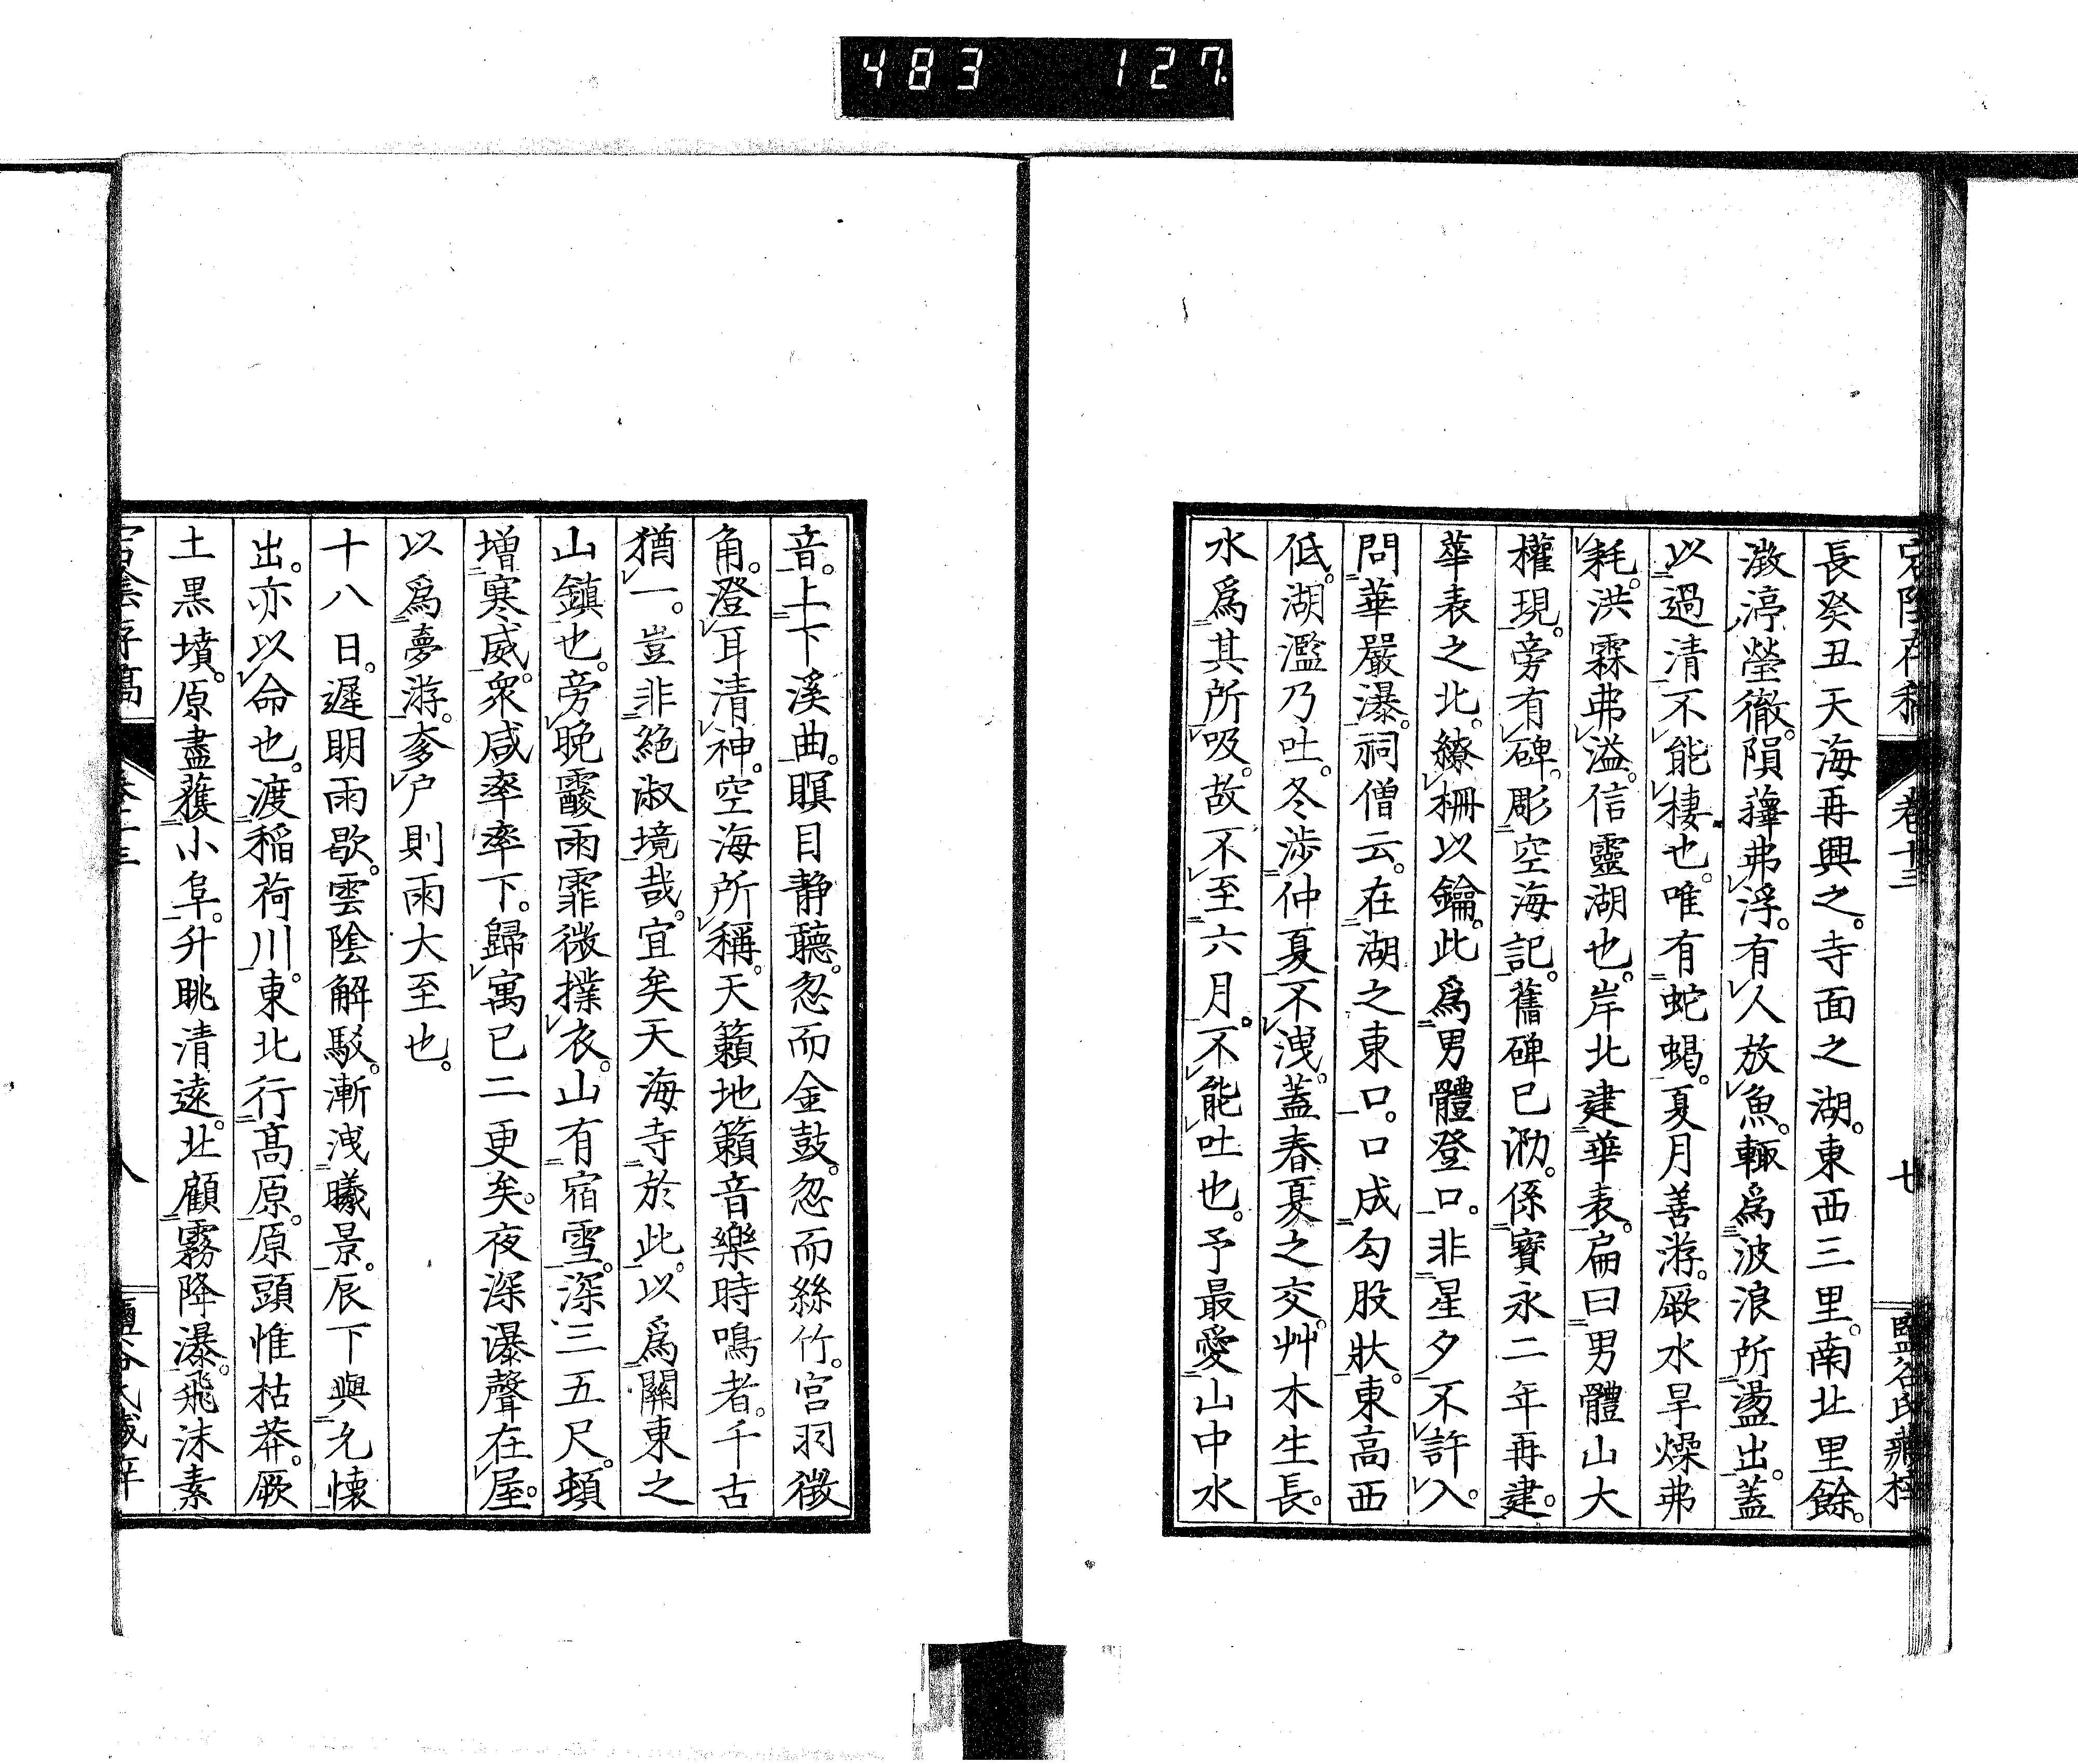 483 127
卷十三
七
長癸丑天海再興之。寺面之湖。東西三里。南北里餘。
澂渟瑩徹。隕蘀弗浮。有人放魚。輙爲波浪所盪出。蓋
以過清不能棲也。唯有蛇蝎。夏月善游。厥水旱燥弗
耗。洪霖弗溢。信靈湖也。岸北建華表。扁曰男體山大
權現。旁有碑。彫空海記。舊碑已泐。係寶永二年再建。
華表之北。繚柵以鑰。此爲男體登口。非星夕不許入。
問華嚴瀑。祠僧云。在湖之東口。口成勾股狀。東高西
低。湖濫乃吐。冬渉仲夏不洩。蓋春夏之交。艸木生長。
水爲其所吸。故不至六月。不能吐也。予最愛山中水
音。上下溪曲。瞑目静聽。忽而金鼓。忽而絲竹。宮羽徵
角。澄耳清神。空海所稱。天籟地籟音樂時鳴者。千古
猶一。豈非絶淑境哉。宜矣天海寺於此。以爲關東之
山鎮也。旁晩靉雨霏微撲衣。山有宿雪。深三五尺。頓
増寒威。衆咸率率下。歸寓已二更矣。夜深瀑聲在屋。
以爲夢游。奓户則雨大至也。
十八日。遲明雨歇。雲陰解駁。漸洩曦景。辰下與允懐
出。亦以命也。渡稲荷川。東北行高原。原頭惟枯莽。厥
土黒墳。原盡蓰小阜。升眺清遠。北顧霧降瀑。飛沫素